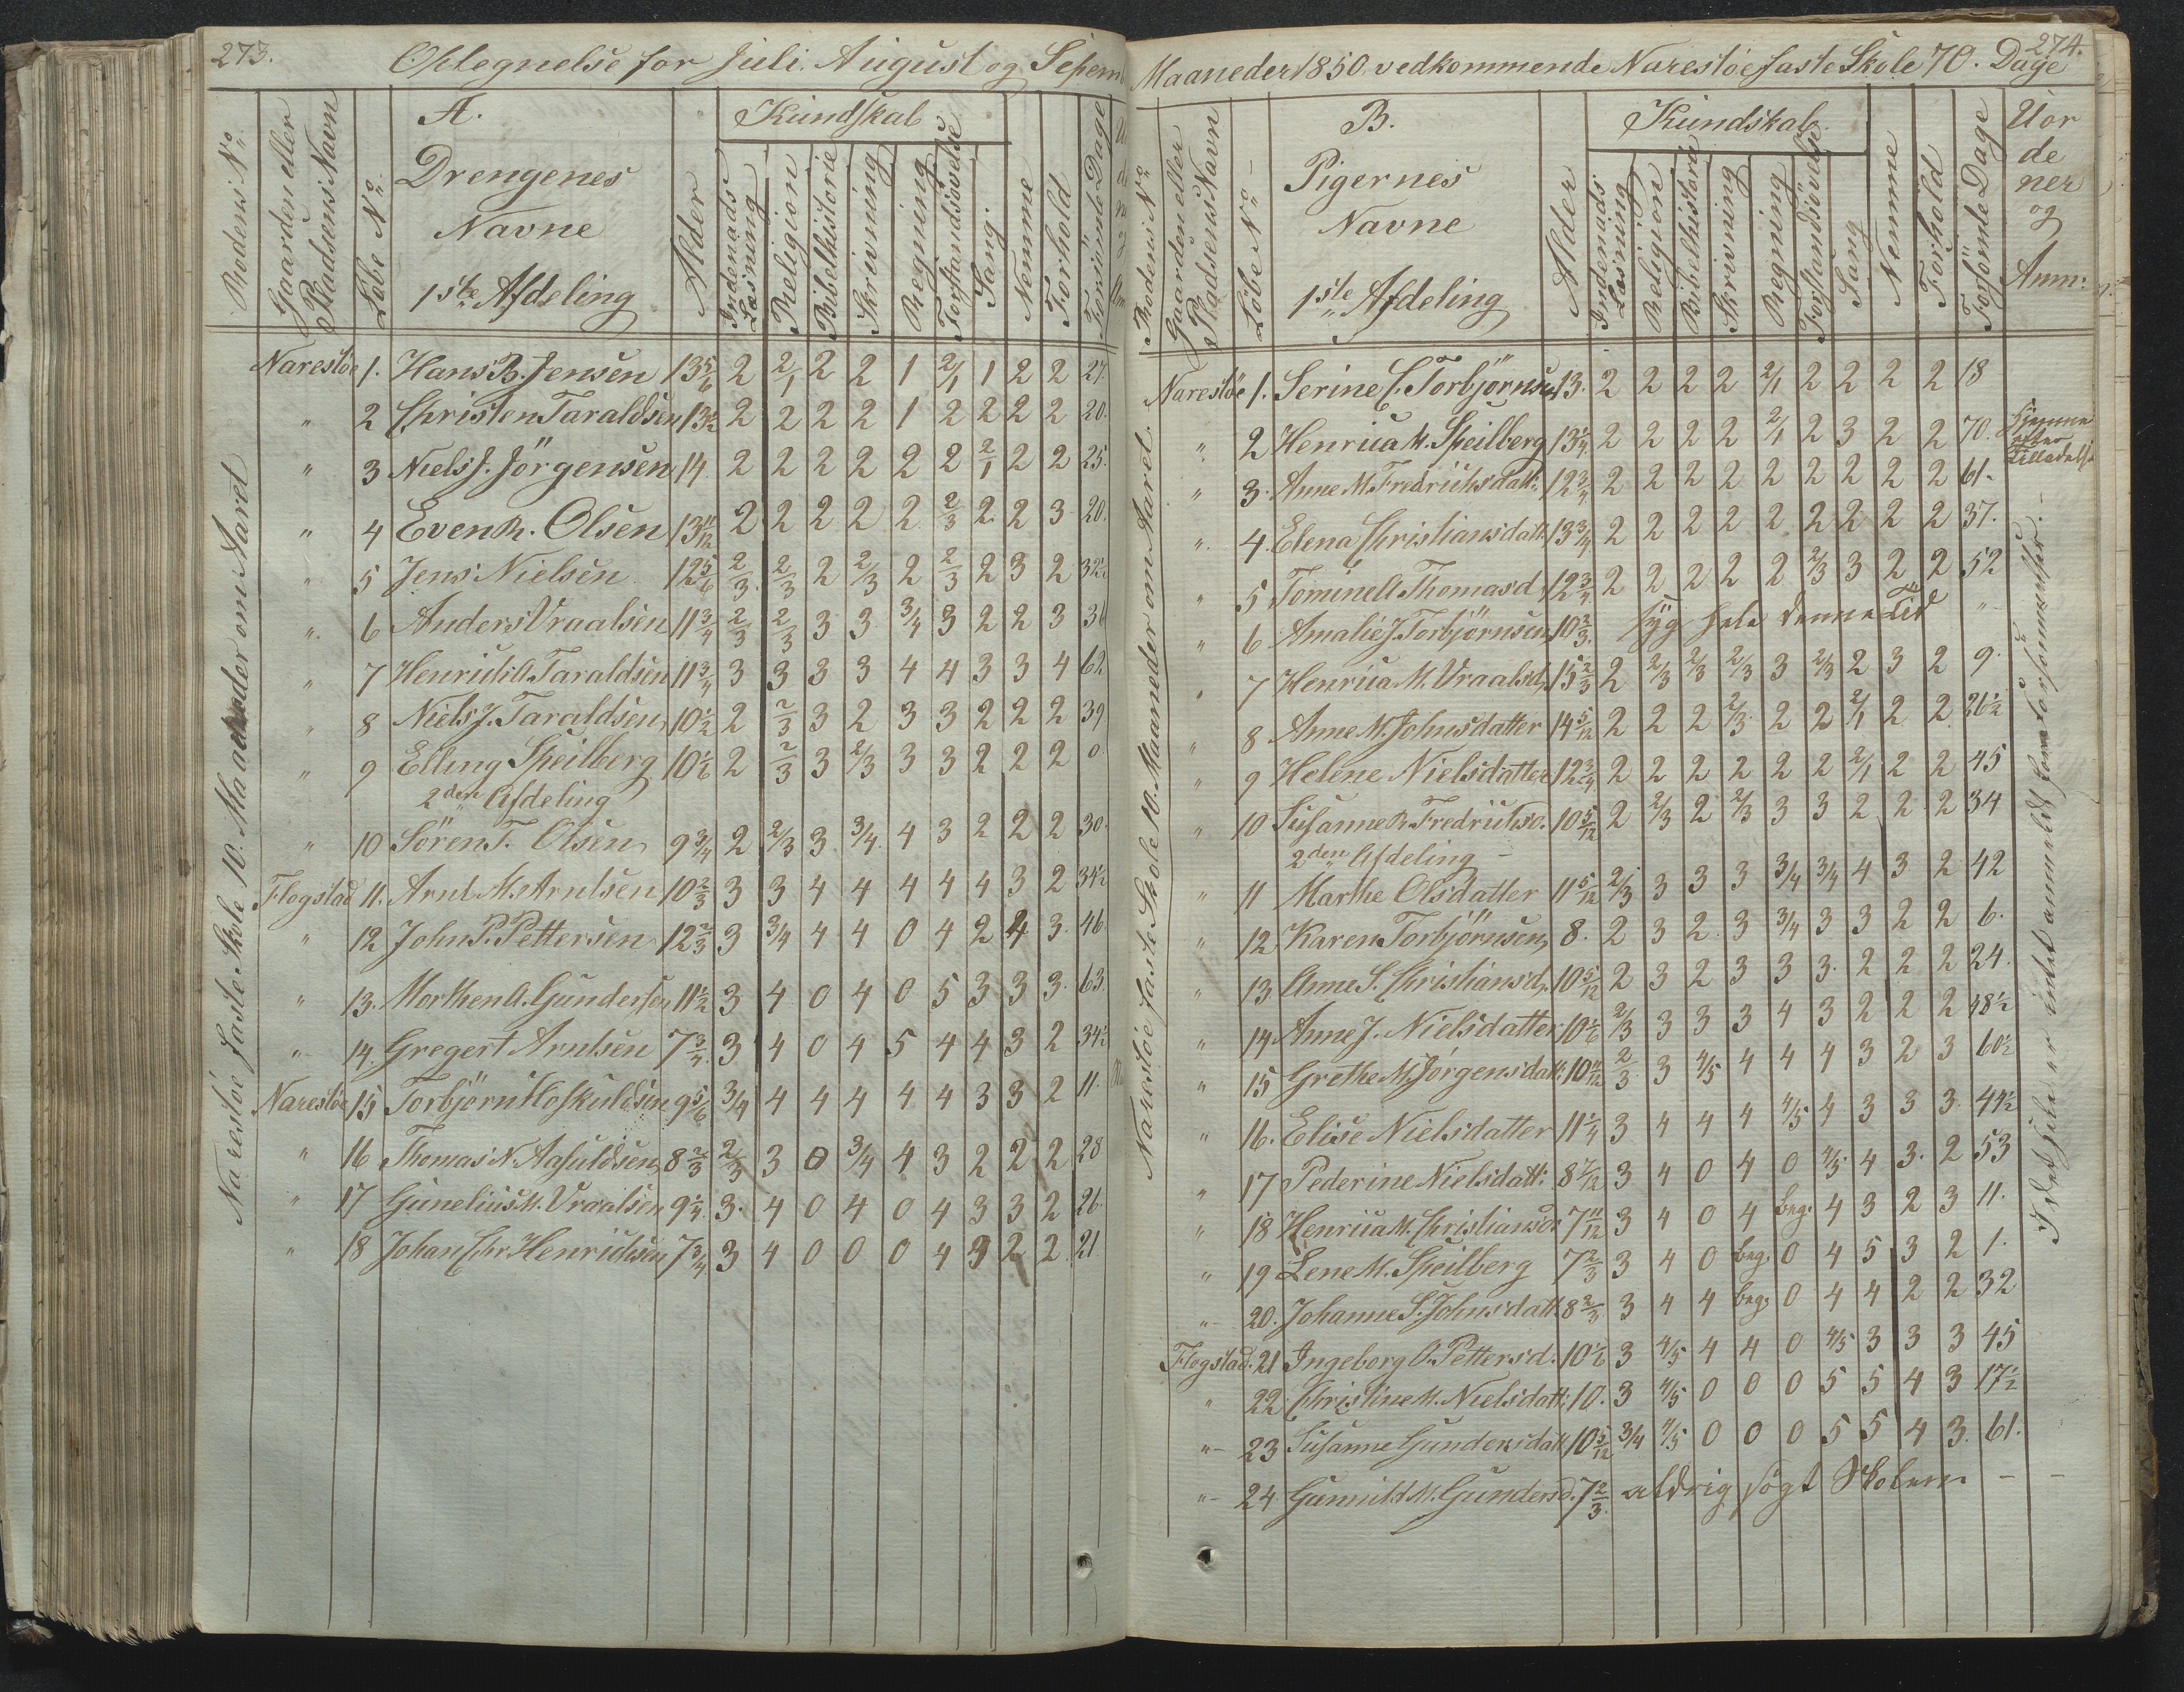 273.
Optegnelse for Juli August og Septem
Rodens No.
Gaarden eller Pladsens Navn
Löbe No.
A.
Drengenes
Navne
1ste Afdeling
Alder
Kundskab
Indenads Læsning
Religion
Bibelhistorie
Skrivning
Regning
Forstandsövelse
Sang
Nemme
Forhold
Forsömte Dage
Narestöe faste Skole 10. Maaneder om Aaret
Narestöe 1. Hans B. Jensen 13 5/6 2 2/1 2 2 1 2/1 1 2 2 27.
" 2 Christen Taraldsen 13 1/2 2 2 2 2 1 2 2 2 2 20.
" 3 Niels J. Jörgensen 14 2 2 2 2 2 2 2/1 2 2 25.
" 4 Even R. Olsen 13 11/12 2 2 2 2 2 2/3 2 2 3 20.
" 5 Jens Nielsen 12 5/6 2/3 2/3 2 2/3 2 2/3 2 3 2 32 1/2
" 6 Anders Vraalsen 11 3/4 2/3 2/3 3 3 3/4 3 2 2 3 36
" 7 Henrich A. Taraldsen 11 3/4 3 3 3 3 4 4 3 3 4 62
" 8 Niels J. Taraldsen 10 1/2 2 2/3 3 2 3 3 2 2 2 39
" 9 Elling Speilberg 10 1/6 2 2/3 3 2/3 3 3 2 2 2 0
2den Afdeling
" 10 Sören T. Olsen 9 3/4 2 2/3 3 3/4 4 3 2 2 2 30.
Flogstad 11. Arnt M. Arntsen 10 2/3 3 3 4 4 4 4 4 3 2 34 1/2
" 12 John P. Pettersen 12 2/3 3 3/4 4 4 0 4 2 4 3. 46.
" 13. Morthen A. Gundersen 11 1/2 3 4 0 4 0 5 3 3 3. 63.
" 14. Gregert Arntsen 7 3/4 3 4 0 4 5 4 4 3 2 34 1/2
Narestöe 15 Torbjörn Hoskuldsen 9 5/6 3/4 4 4 4 4 4 3 3 2 11.
" 16 Thomas N. Aasuldsen 8 2/3 2/3 3 0 3/4 4 3 2 2 2 28
" 17 Gunelius M. Vraalsen 9 1/4 3. 4 0 4 0 4 3 3 2 26.
" 18 Johan Chr. Henrichsen 7 3/4 3 4 0 0 0 4 3 2 2 21
274.
Maaneder 1850. vedkommende Narestöe faste Skole 70. Dage
Rodens No.
Gaarden eller Pladsens Navn
Löbe No.
B.
Pigernes
Navne
1ste Afdeling
Alder
Kundskab.
Indenads Læsning
Religion
Bibelhistorie
Skrivning
Regning
Forstandsövelse
Sang
Nemme
Forhold
Forsömte Dage
Uor
de
ner
og
Anm:
Narestöe faste Skole 10. Maaneder om Aaret.
Narestöe 1. Serine C. Torbjörnsen 13. 2 2 2 2 2/1 2 2 2 2 18
" 2 Henrica M. Speilberg 13 1/4 2 2 2 2 2/1 2 3 2 2 70. hjemme efter Tilladelse
" 3. Anne M. Fredrichsdatt: 12 3/4 2 2 2 2 2 2 2 2 2 61.
" 4. Elena Christiansdatt 13 3/4 2 2 2 2 2 2 2 2 2 37.
" 5 Tominell Thomasd. 12 3/4 2 2 2 2 2 2/3 3 2 2 52
" 6 Amalie J. Torbjörnsen 10 2/3. syg hele denne Tid "
" 7 Henrica M. Vraalsd. 15 2/3 2 2/3 2/3 2/3 3 2/3 2 3 2 9.
" 8 Anne M. Johnsdatter 14 5/12 2 2 2 2/3 2 2 2/1 2 2 26 1/2
" 9 Helene Nielsdatter 12 3/4 2 2 2 2 2 2 2/1 2 2 45
" 10 Susanne R. Fredrichsd. 10 5/12 2 2/3 2 2/3 3 3 2 2 2 34
2den Afdeling
" 11 Marthe Olsdatter 11 5/12 2/3 3 3 3 3/4 3/4 4 3 2 42
" 12 Karen Torbjörnsen 8. 2 3 2 3 3/4 3 3 2 2 6.
" 13 Anne S. Christiansd. 10 5/12 2 3 2 3 3 3. 2 2 2 24.
" 14 Anne J. Nielsdatter 10 1/6 2/3 3 3 3 4 3 2 2 2 48 1/2
" 15 Grethe M. Jörgensdatt: 10 11/12 2/3 3 4/5 4 4 4 3 2 3 60 1/2
" 16. Elise Nielsdatter 11 1/4 3 4 4 4 4/5 4 3 3 3. 44 1/2
" 17 Pederine Nielsdatt: 8 7/12 3 4 0 4 0 4/5 4 3. 2 53
" 18 Henrica M. Christiansd. 7 11/12 3 4 0 4 beg. 4 3 2 3 11.
" 19 Lene M. Speilberg 7 2/3 3 4 0 beg. 0 4 5 3 2 1.
" 20. Johanne S. Johnsdatt 8 2/3 3 4 4 beg. 0 4 4 2 2 32
Flogstad. 21 Ingeborg O. Pettersd. 10 1/6 3 4/5 4 4 0 4/5 3 3 3 45
" 22 Christine M. Nielsdatt: 10. 3 4/5 0 0 0 5 5 4 3 17 1/2
" 23 Susanne Gundersdatt 10 5/12 3/4 4/5 0 0 0 5 5 4 3. 61.
" 24 Gunnild M. Gundersd. 7 2/3. aldrig sögt Skolen